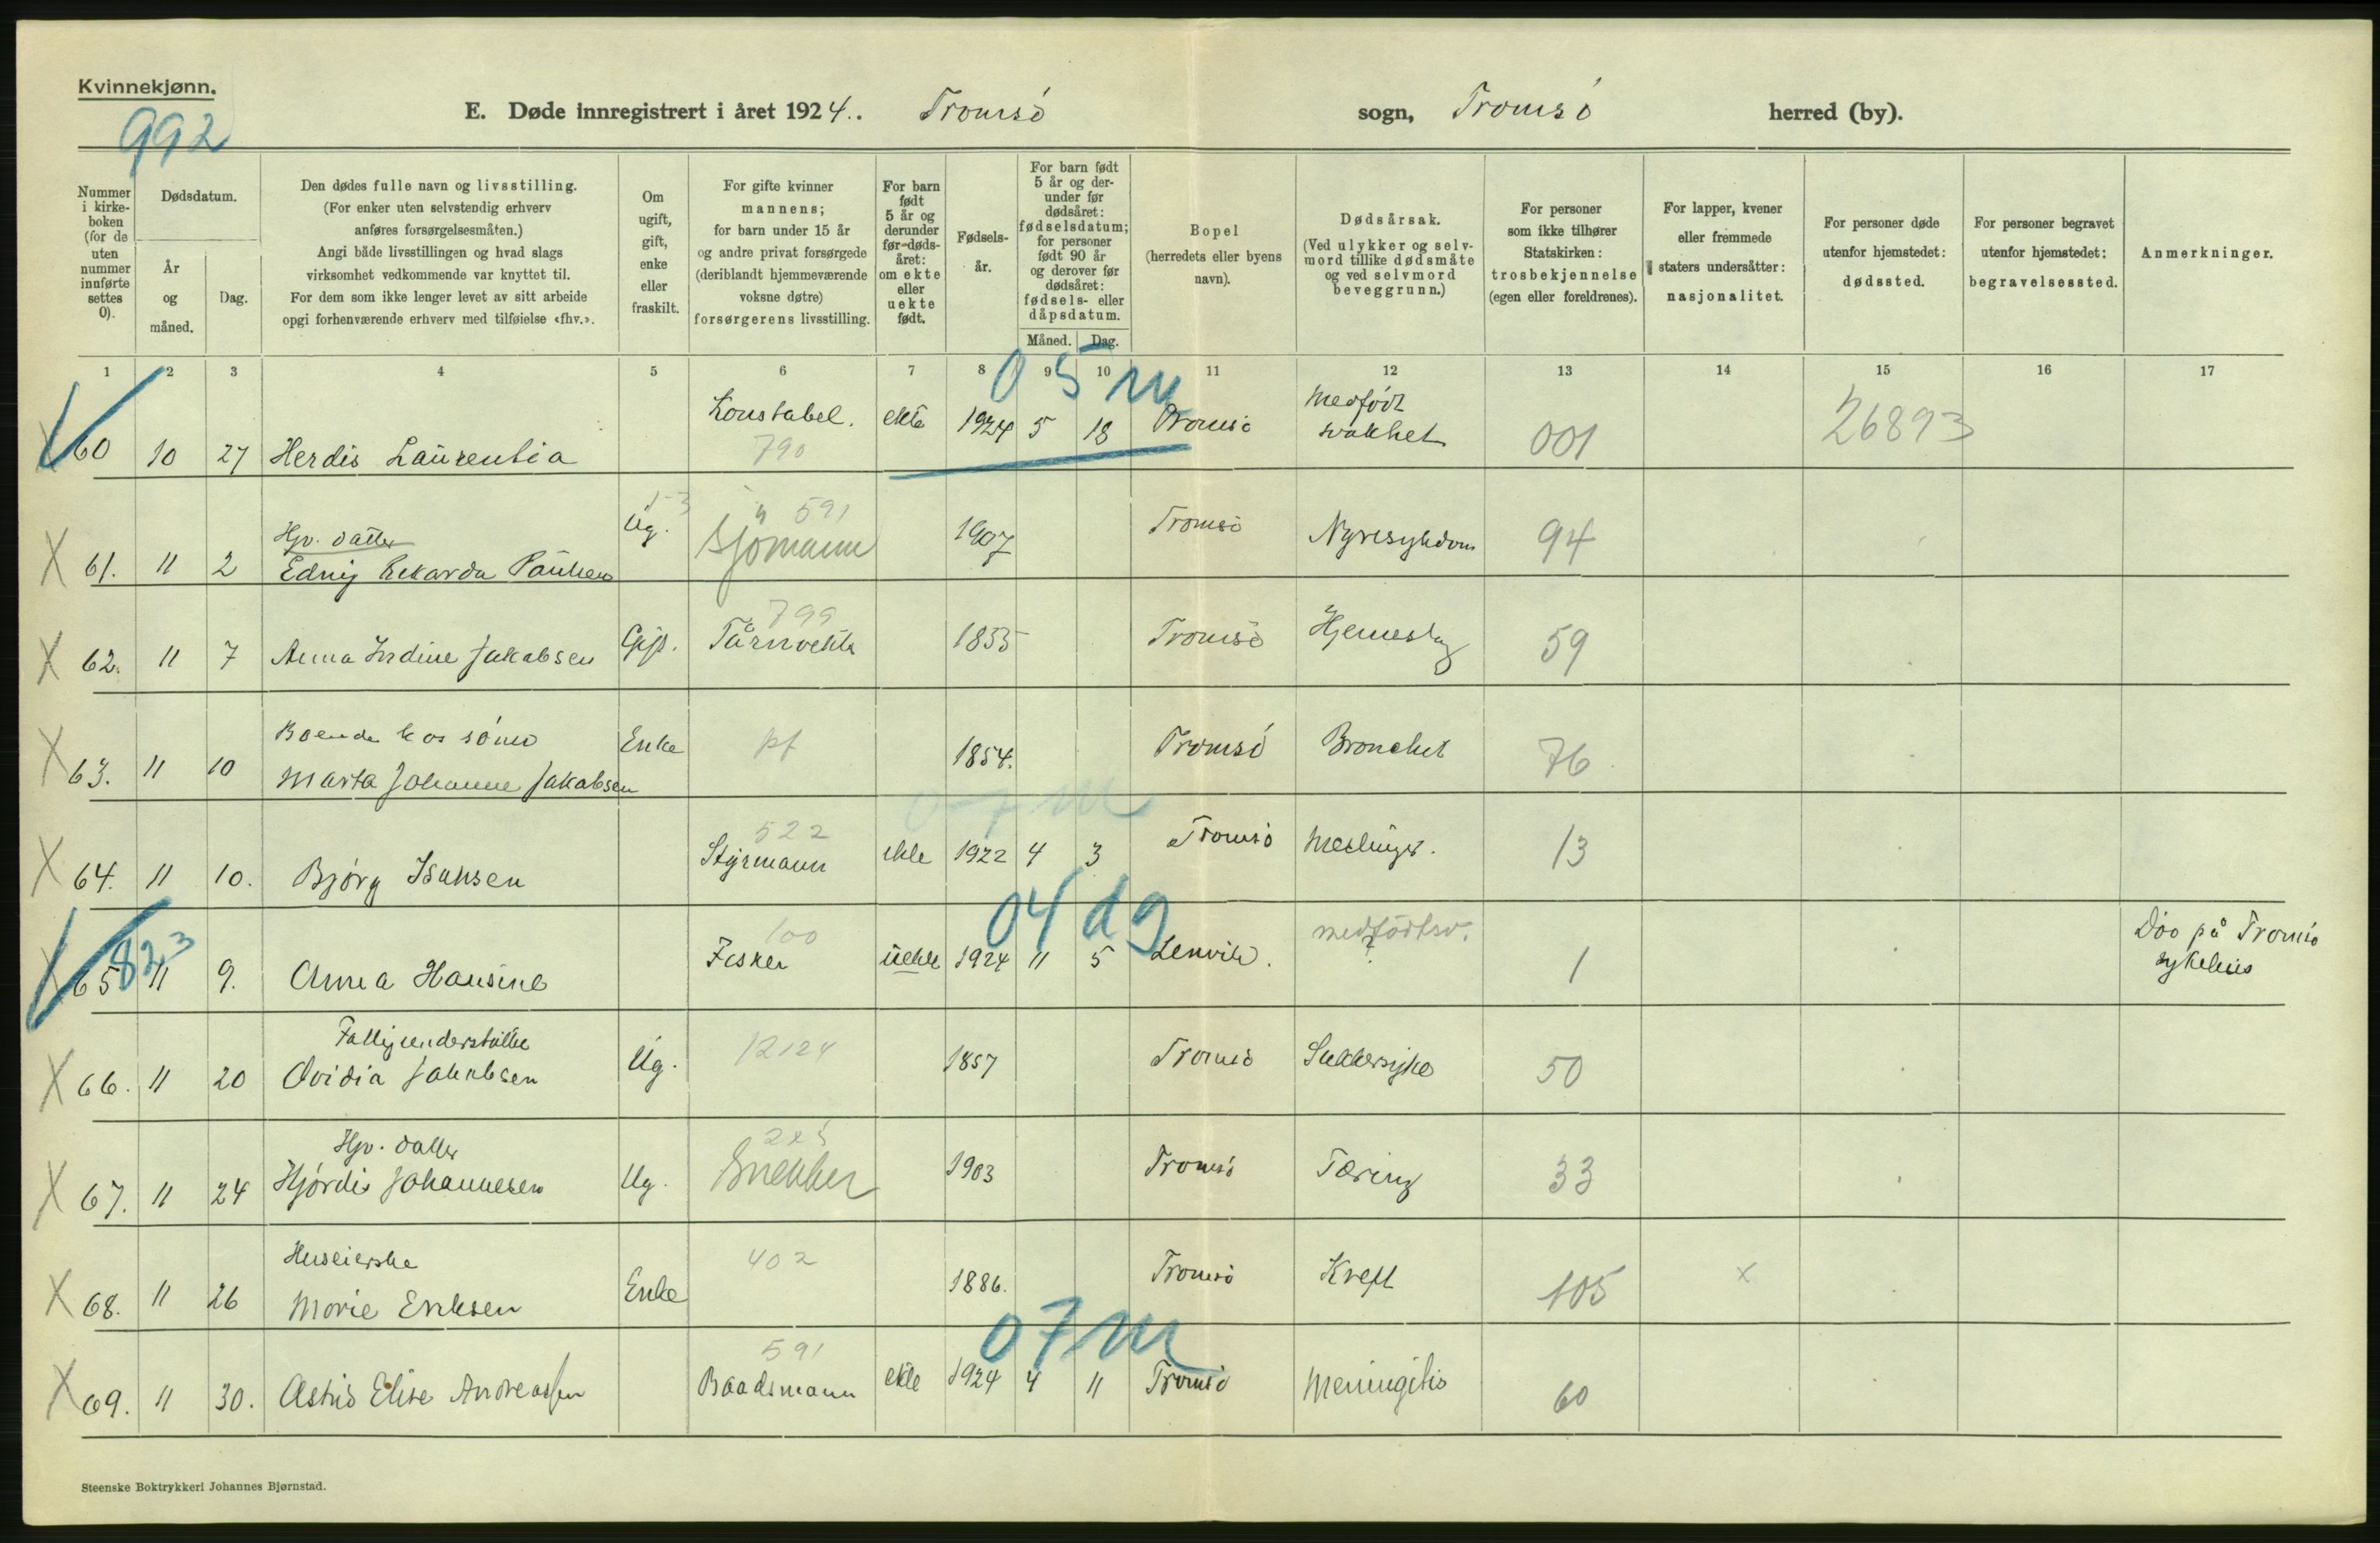 Kvinnekjønn.
992
E. Døde innregistrert i året 1924. Tromsø sogn, Tromsø herred (by).
Nummer i kirke-boken (for de uten nummer innførte settes 0).
Dødsdatum.
År og måned.
Dag.
Den dødes fulle navn og livsstilling.
(For enker uten selvstendig erhverv
anføres forsørgelsesmåten.)
Angi både livsstillingen og hvad slags
virksomhet vedkommende var knyttet til.
For dem som ikke lenger levet av sitt arbeide
opgi forhenværende erhverv med tilføielse «fhv.».
Om ugift, gift, enke eller fraskilt.
For gifte kvinner
mannens;
for barn under 15 år
og andre privat forsørgede
(deriblandt hjemmeværende
voksne døtre)
forsørgerens livsstilling.
For barn født 5 år og derunder før døds-året: om ekte eller uekte født.
Fødsels-år.
For barn født 5 år og der-under før dødsåret: fødselsdatum; for personer født 90 år og derover før dødsåret: fødsels- eller dåpsdatum.
Måned. Dag.
Bopel
(herredets eller byens
navn).
Dødsårsak.
(Ved ulykker og selv-
mord tillike dødsmåte
og ved selvmord
beveggrunn.)
For personer
som ikke tilhører
Statskirken:
trosbekjennelse
(egen eller foreldrenes).
For lapper, kvener
eller fremmede
staters undersåtter:
nasjonalitet.
For personer døde
utenfor hjemstedet:
dødssted.
For personer begravet
utenfor hjemstedet:
begravelsessted.
Anmerkninger.
1 2 3 4 5 6 7 8 9 10 11 12 13 14 15 16 17
05 m
60 10 27 Herdis Laurentia Konstabel. 790 ekte 1924 5 18 Tromsø Medfødt svakhet 001 26893
X 61. 11 2 Hjv. datter
Ug. 591 Sjömann 1907 Tromsø Nyresykdom 94
X 62. 11 7 Anna Indine Jakobsen Gift. 799 1855 Tromsø 59
X 63. 11 10 Boende hos sønn
Marta Johanne Jakobsen Enke pf 1854. Tromsø Bronchit 76
07 m
X 64. 11 10. Bjørg Isaksen 522 Styrmann ekte 1922 4 3 Tromsø Meslinger. 13
04 dg
X 65 823 11 9. Anna Hansine 100 Fisker uekte 1924 11 5 Lenvik. medfødt sv. ? 1 Død på Tromsø
sykehus
X 66. 11 20 Fattigunderstøtte
Ovidia Jakobsen Ug. 12124 1857 Tromsø Sukkersyke 50
X 67. 11 24 Hjv. datter
Hjørdis Johannesen Ug. Snekker 1903 Tromsø Tæring 33
X 68. 11 26 Huseierske
Marie Eriksen Enke 402 1886. Tromsø Kreft 105 x
07 m
X 69. 11 30. Astrid Elise Andreassen 591 Baadsmann ekte 1924 4 11 Tromsø Meningitis 60
Steenske Boktrykkeri Johannes Bjørnstad.